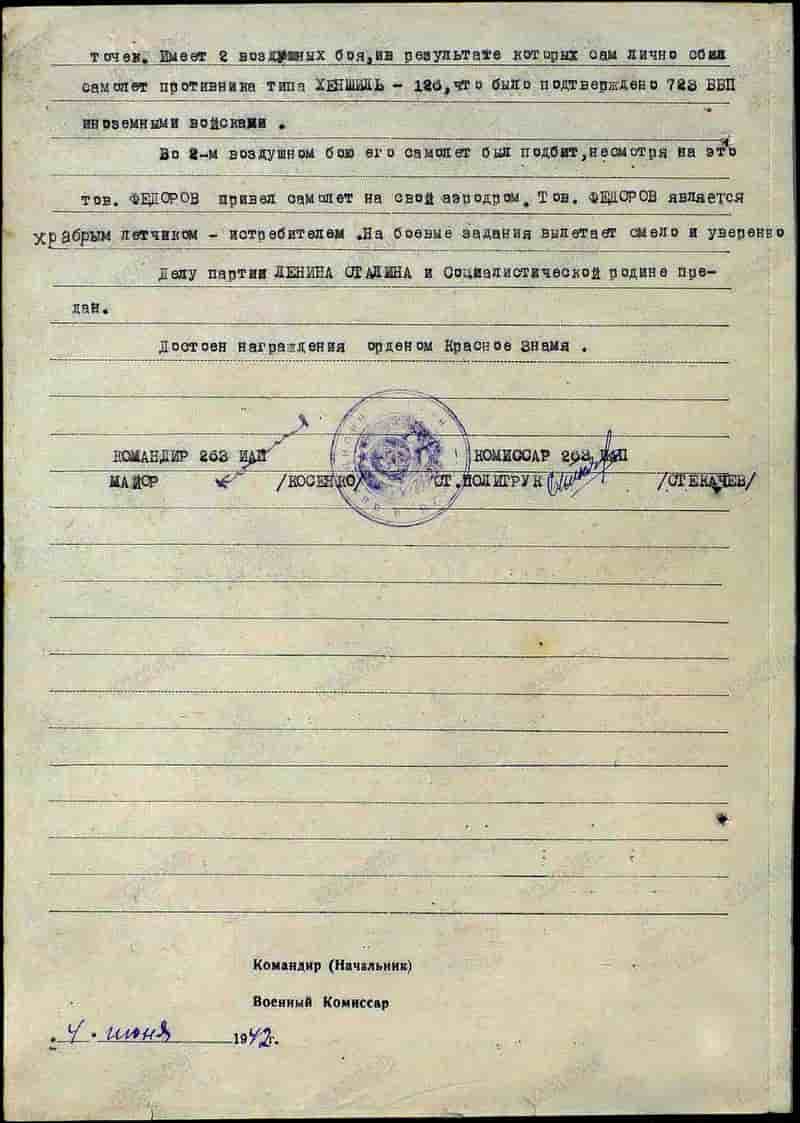 точек. Имеет 2 воздушных боя,ив результате которых сам лично сбил
самолет противника типа ХЕНШИЛЬ - 126,что было подтверждено 723 ВВП
иноземными войсками .
Во 2-м воздушном бою его самолет был подбит,несмотря на это
тов. ФЕДОРОВ привел самолет на свой аэродром. Тов. ФЕДОРОВ является
храбрым летчиком - истребителем .На боевые задания вылетает смело и уверенно
Делу партии ЛЕНИНА СТАЛИНА и Социалистической родине пре-
дан.
Достоен награждения орденом Красное Знамя .
КОМАНДИР 263 ИАП КОМИССАР 263 ИАП
МАЙОР /КОСЕНКО/ СТ.ПОЛИТРУК /СТЕКАЧЕВ/
Командир (Начальник)
Военный Комиссар
"4" июня 1942г.